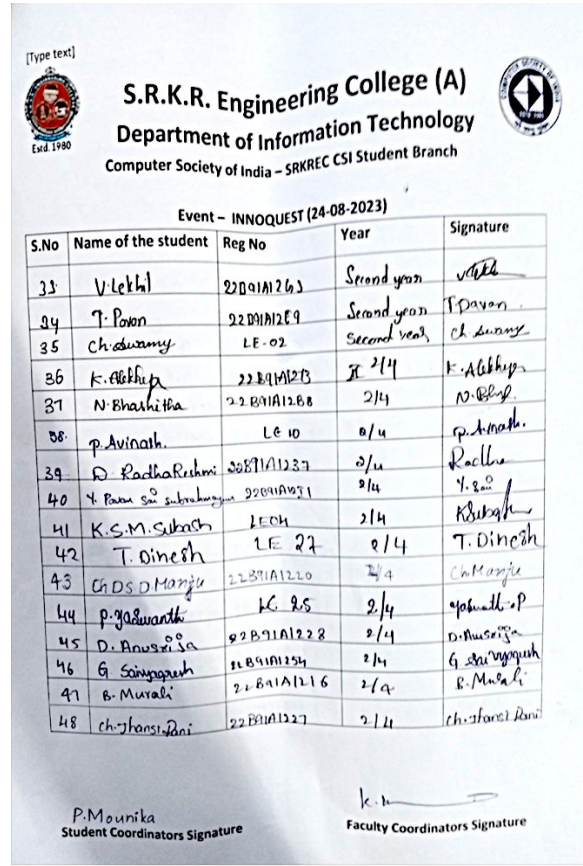 [Type text]
S.R.K.R. Engineering College (A)
Department of Information Technology
Computer Society of India – SRKREC CSI Student Branch
Estd. 1980
Event – INNOQUEST (24-08-2023)
S.No Name of the student Reg No Year Signature
33 V. Lekhil Second year
34 T. Pavan Second year T Pavan
35 Ch. Swamy LE-02 Second year Ch Swamy
36 2/4
37 N. Bhashitha 22B91A12B8 2/4
38. P. Avinash. LE 10 2/4
39 D. RadhaReshmi 22B91A1237 2/4 Radha
40 Y. Pavan Sai 2/4 Y. Sai
41 K.S.M. Subash LE04 2/4 KSubash
42 T. Dinesh LE 27 2/4 T. Dinesh
43 Ch D S D Manju 22B91A1220 2/4 Ch Manju
44 P. Yaswanth LE 25 2/4
45 D. Anusrija 22B91A1228 2/4 D. Anusrija
46 G 22B91A1254 2/4 G
47 B. Murali 22B91A1216 2/4 B. Murali
48 Ch. Jhansi Rani 22B91A1227 2/4 Ch. Jhansi Rani
P. Mounika
Student Coordinators Signature Faculty Coordinators Signature